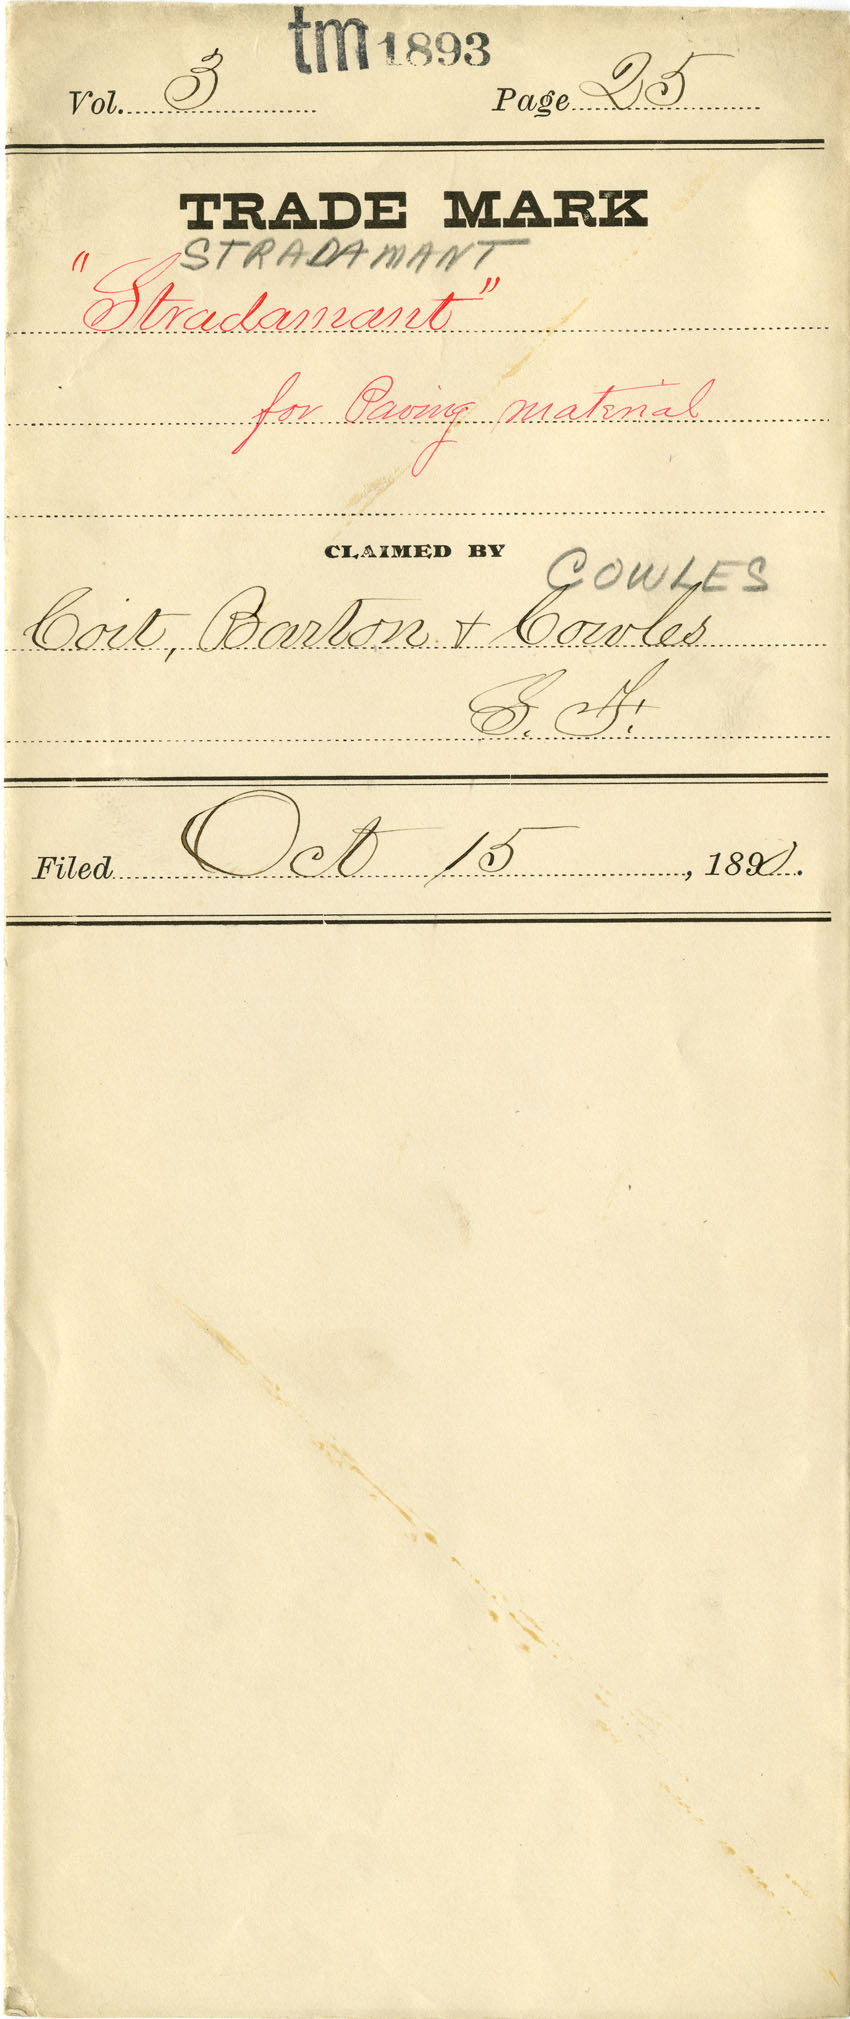 tm 1893
Vol. 3 Page 25
TRADE MARK
STRADAMANT
"Stradamant"
for Paving material
CLAIMED BY
COWLES
Coit, Barton & Cowles
S. F.
Filed Oct 15, 1890.